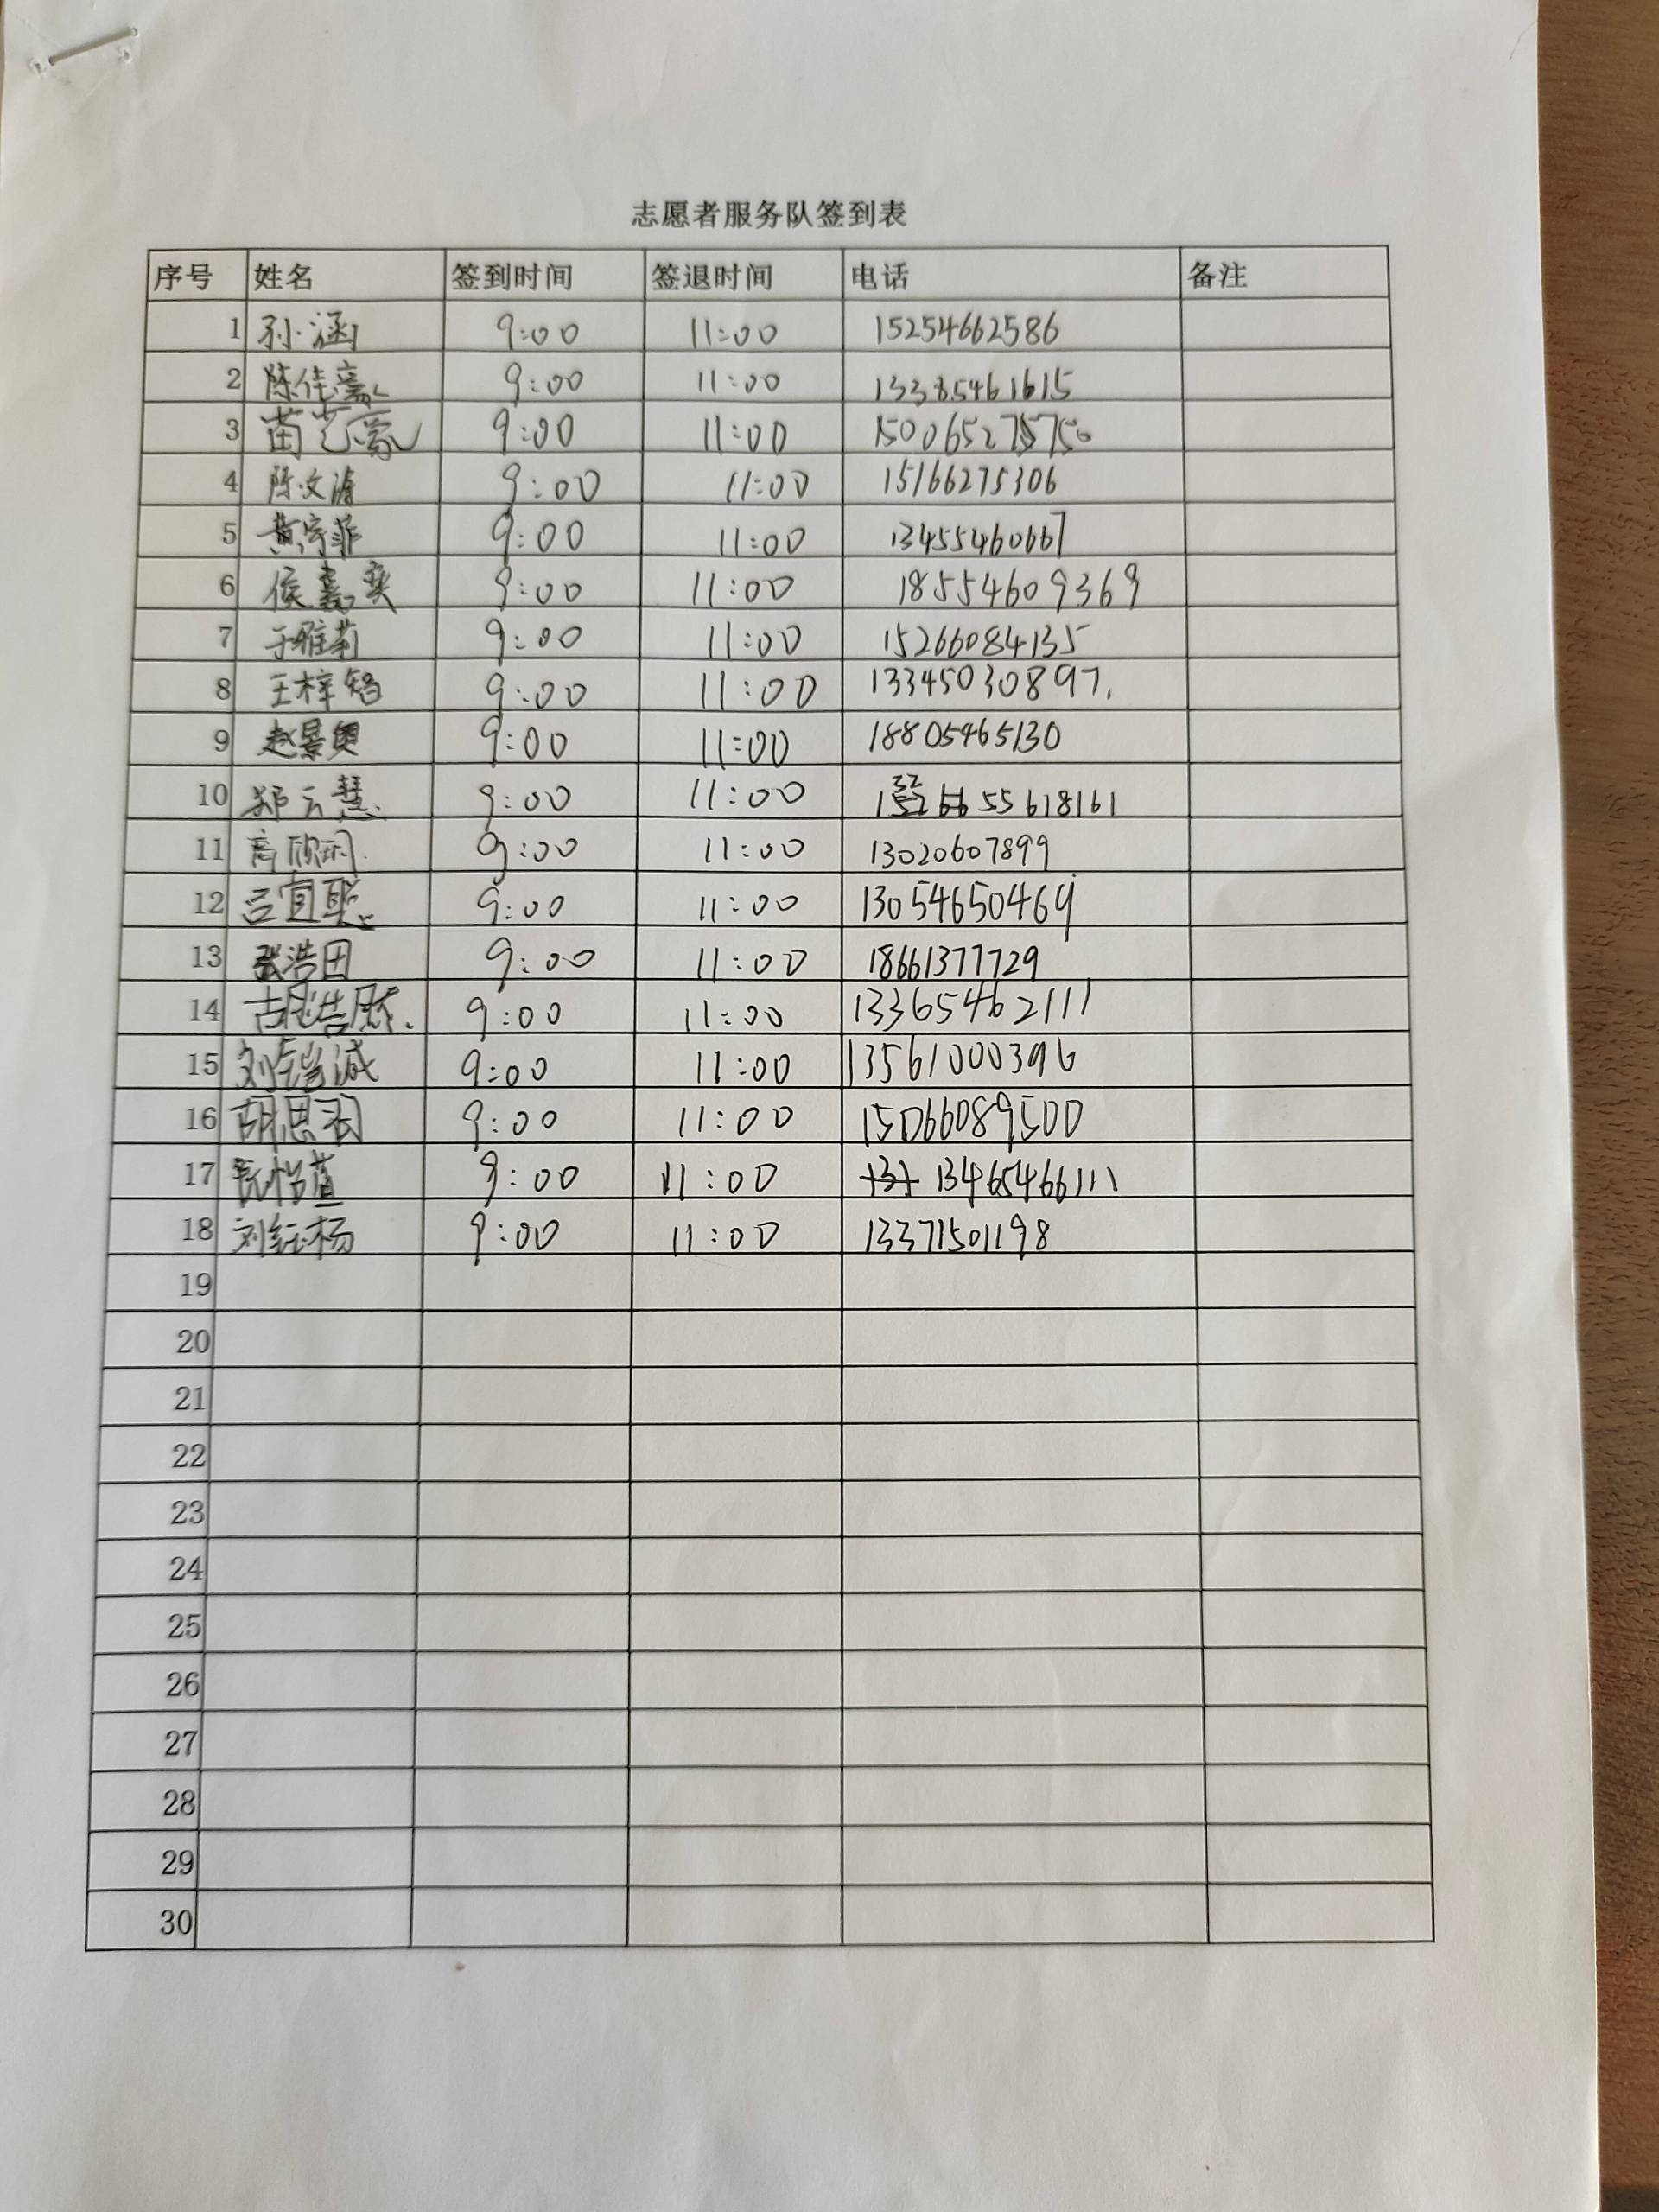 志愿者服务队签到表
序号 姓名 签到时间 签退时间 电话 备注
1 孙涵 9:00 11:00 15254662586
2 陈佳嬴 9:00 11:00 13385461615
3 苗艺 9:00 11:00
4 陈文涛 9:00 11:00 15166275306
5 黄宇菲 9:00 11:00 13455460667
6 侯嘉奕 9:00 11:00 18554609369
7 于雅莉 9:00 11:00 15266084135
8 王梓铭 9:00 11:00 13345030897.
9 赵景奥 9:00 11:00 18805465130
10 郑云慧 9:00 11:00
11 高欣玥 9:00 11:00 13020607899
12 吕宜聪 9:00 11:00 13054650469
13 张浩田 9:00 11:00 18661377729
14 浩 9:00 11:00 13365462111
15 刘铠诚 9:00 11:00 13561000396
16 胡思羽 9:00 11:00 15066089500
17 阮怡萱 9:00 11:00 13465466111
18 刘钰杨 9:00 11:00 13371501198
19
20
21
22
23
24
25
26
27
28
29
30